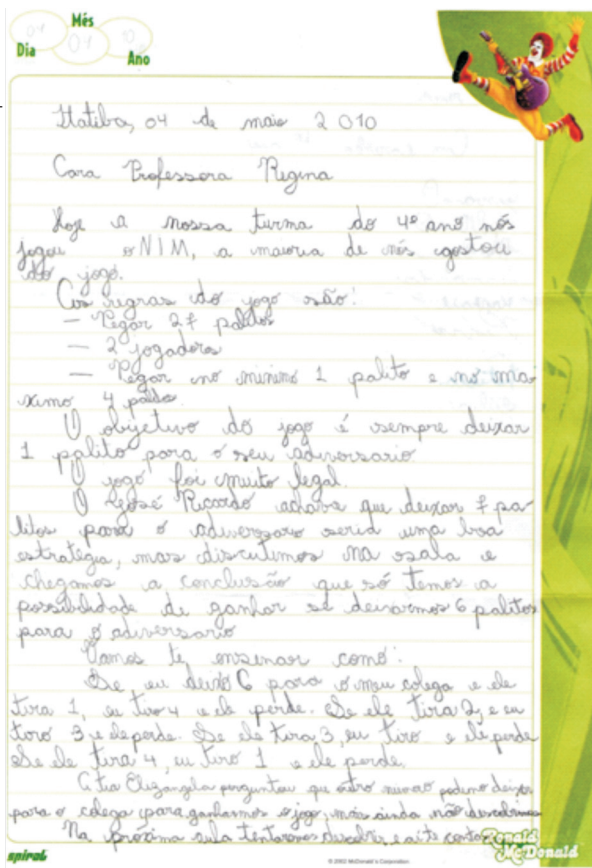 Mês
Dia
Ano
Itatiba, 04 de maio 2010
Cara Professora Regina
Hoje a nossa turma do 4º ano nós
jogou o NIM, a maioria de nós gostou
do jogo.
As regras do jogo são:
– Pegar 27 palitos
– 2 jogadores
– Pegar no minimo 1 palito e no ma
ximo 4 palitos.
O objetivo do jogo é sempre deixar
1 palito para o seu adversario.
O jogo foi muito legal.
O José Ricardo achava que deixar 7 pa-
litos para o adversaro seria uma boa
estratégia, mas discutimos na sala e
chegamos a conclusão que só temos a
possibilidade de ganhar se deixarmos 6 palitos
para o adiversario
Vamos te ensinar como:
Se eu deixo 6 para o meu colega e ele
tira 1, eu tiro 4 e ele perde. Se ele tira 2, e eu
tiro 3 e ele perde. Se ele tira 3, eu tiro e ele perde
Se ele tira 4, eu tiro 1 e ele perde.
A tia Elizangela perguntou que outro número podemo deixar
para o colega para ganharmos o jogo, mais ainda não descobrimos
Na próxima aula tentaremos descobrir e ai te
spiral
© 2002 McDonald's Corporation
Ronald
McDonald